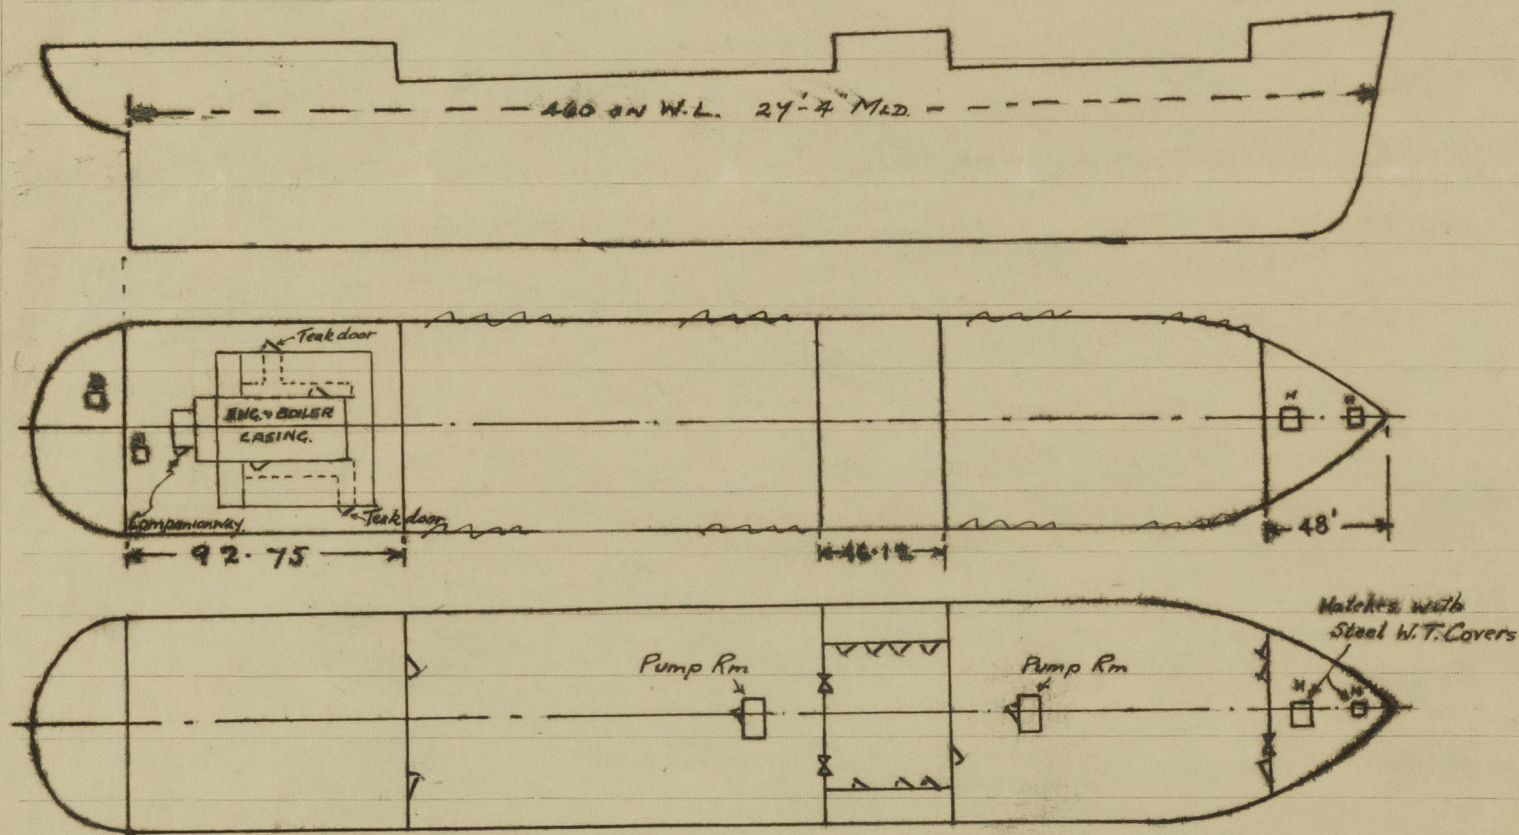 460 ON W.L. 27'-4" MLD.
Teak door
ENG. & BOILER
CASING.
Companionway
Teak door
92.75
46.12
48'
Hatches with
Steel W.T. Covers
Pump Rm
Pump Rm
H
H
H
H